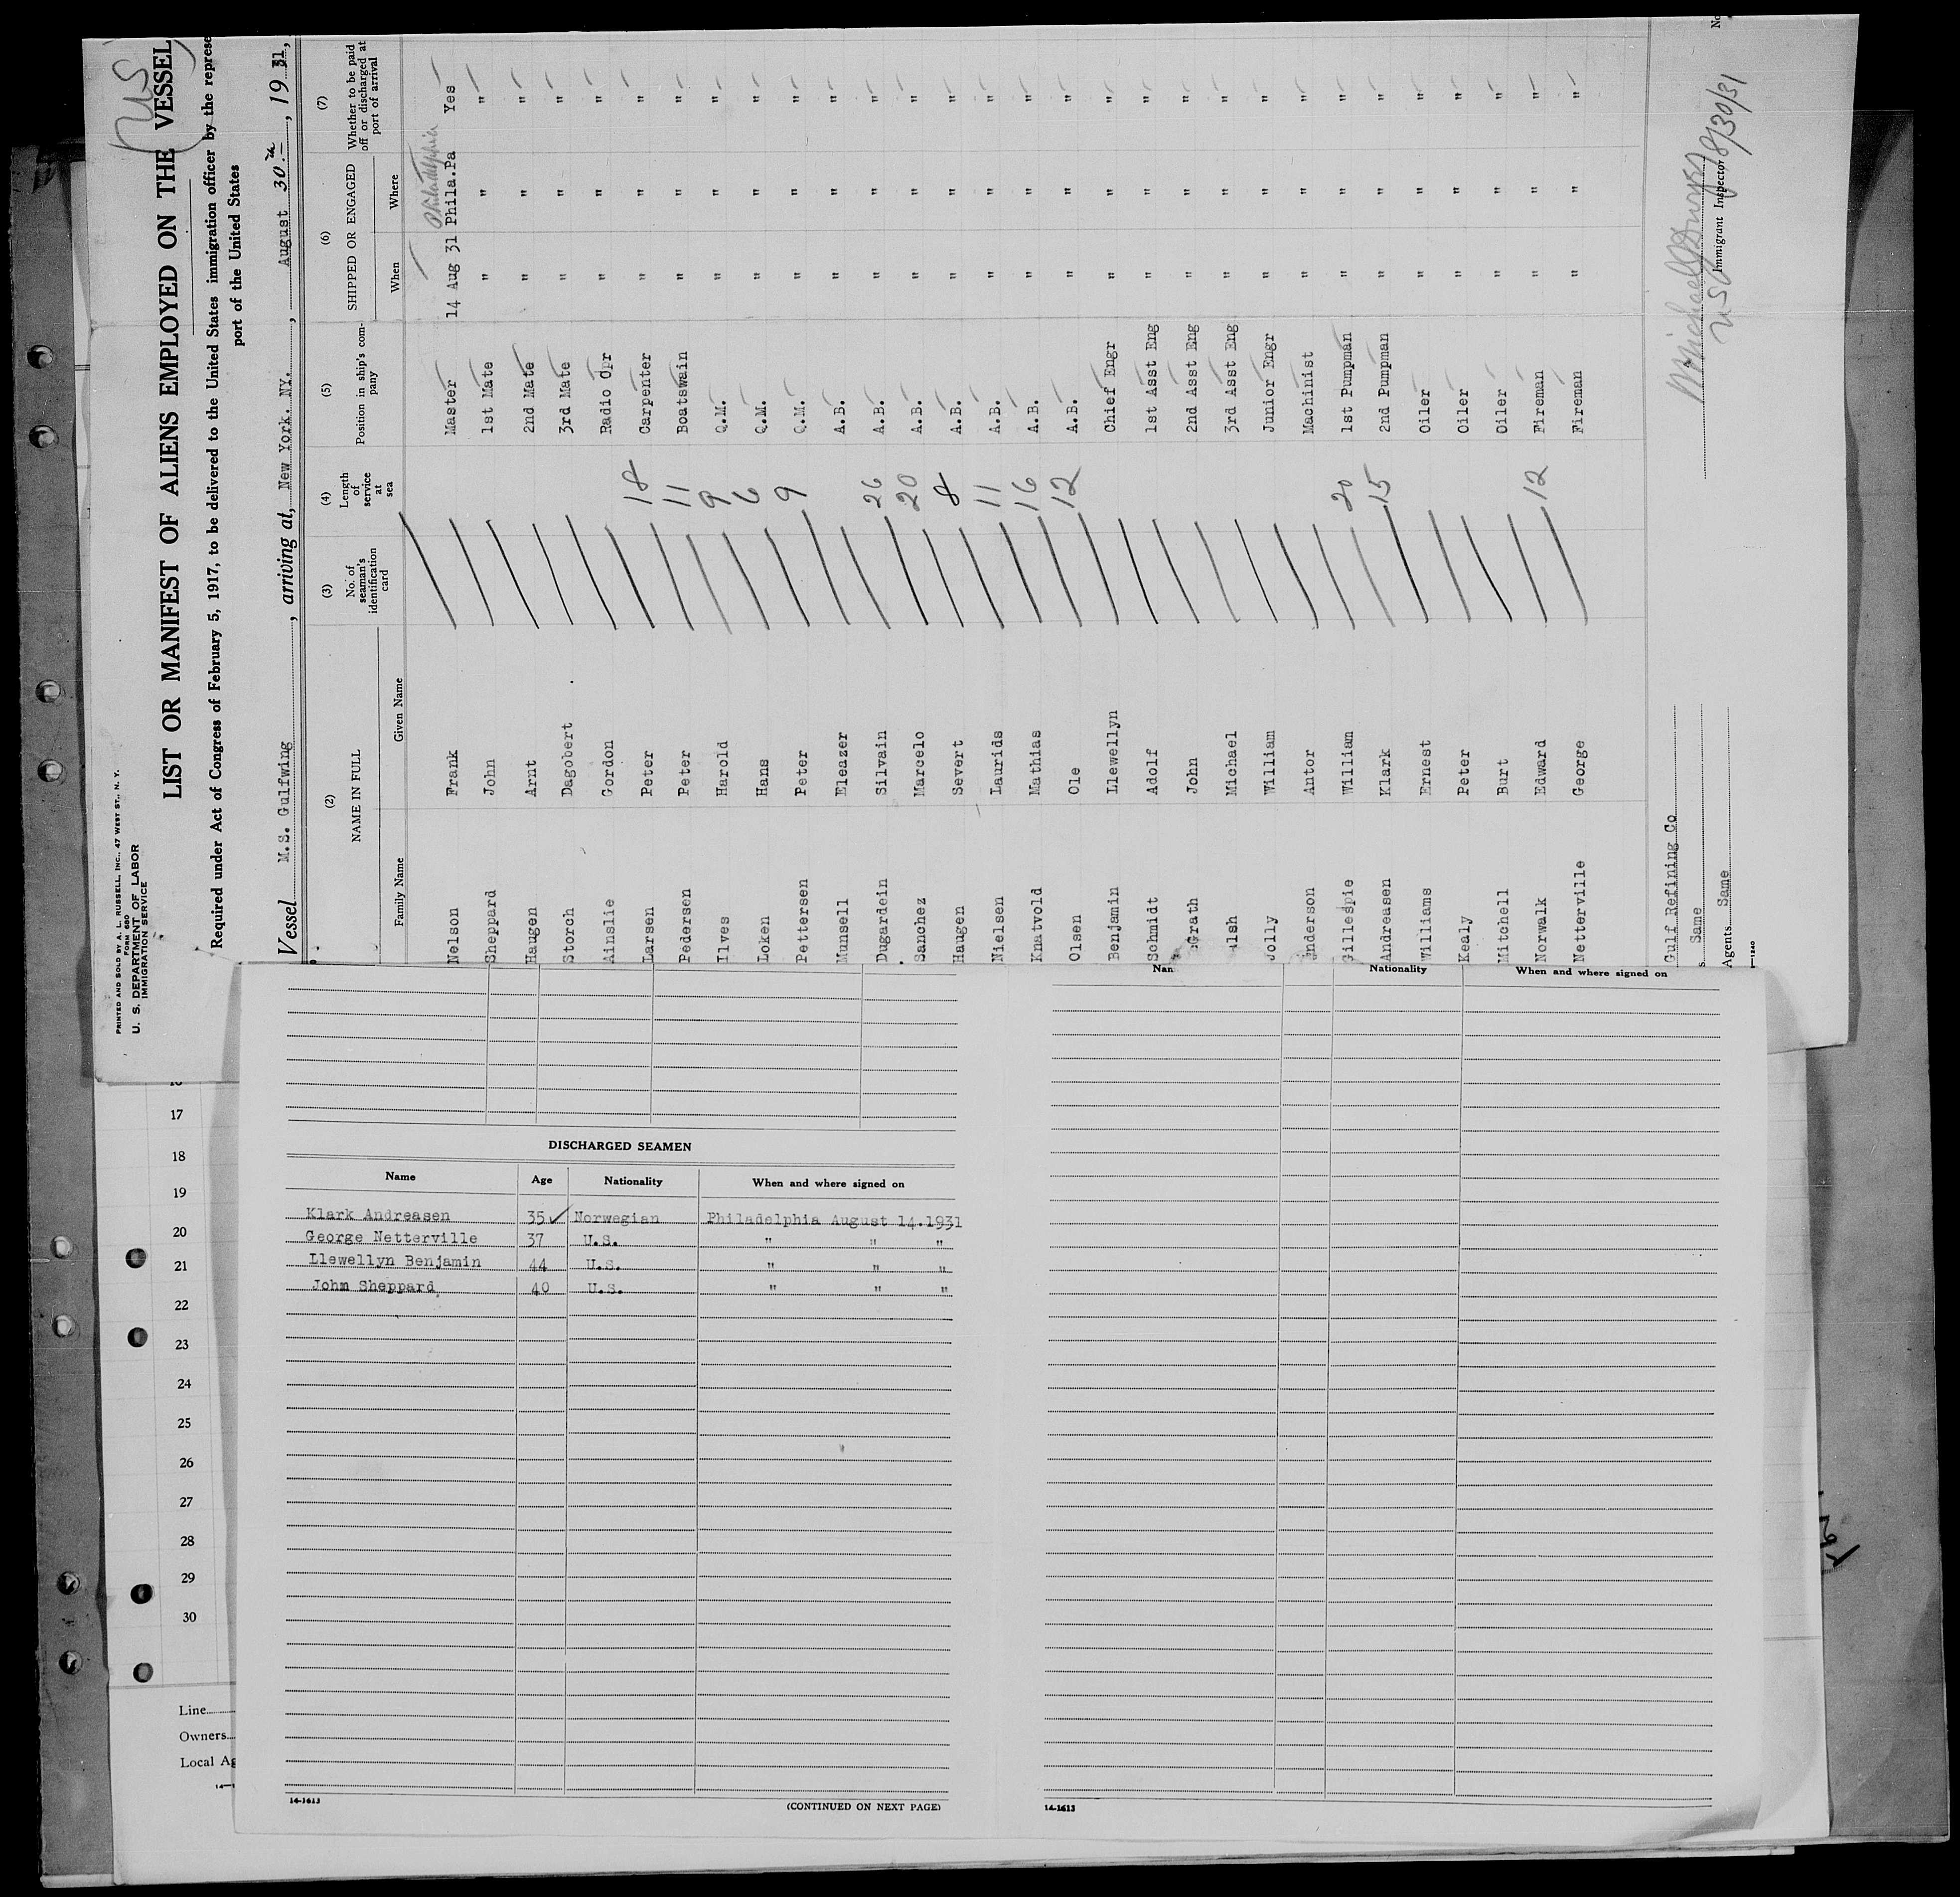 PRINTED AND SOLD BY A. L. RUSSELL, INC., 47 WEST ST., N. Y.
FORM 680
U. S. DEPARTMENT OF LABOR
IMMIGRATION SERVICE
LIST OR MANIFEST OF ALIENS EMPLOYED ON THE VESSEL
Required under Act of Congress of February 5, 1917, to be delivered to the United States immigration officer by the represe
port of the United States
Vessel M.S. Gulfwing, arriving at, New York. NY., August 30th, 19 31,
(2) (3) (4) (5) (6) (7)
NAME IN FULL No. of seaman's identification card Length of service at sea Position in ship's company SHIPPED OR ENGAGED Whether to be paid off or discharged at port of arrival
Family Name Given Name When Where
Philadelphia
Nelson Frank Master 14 Aug 31 Phila.Pa Yes
Sheppard John 1st Mate " " "
Haugen Arnt 2nd Mate " " "
Storch Dagobert 3rd Mate " " "
Ainslie Gordon Radio Opr " " "
Larsen Peter 18 Carpenter " " "
Pedersen Peter 11 Boatswain " " "
Ilves Harold 9 Q.M. " " "
Loken Hans 6 Q.M. " " "
Pettersen Peter 9 Q.M. " " "
Munsell Eleazer A.B. " " "
Dugardein Silvain 26 A.B. " " "
Sanchez Marcelo 20 A.B. " " "
Haugen Severt 8 A.B. " " "
Nielsen Laurids 11 A.B. " " "
Knatvold Mathias 16 A.B. " " "
Olsen Ole 12 A.B. " " "
Benjamin Llewellyn Chief Engr " " "
Schmidt Adolf 1st Asst Eng " " "
Grath John 2nd Asst Eng " " "
lsh Michael 3rd Asst Eng " " "
Jolly William Junior Engr " " "
Anderson Antor Machinist " " "
Gillespie William 20 1st Pumpman " " "
Andreasen Klark 15 2nd Pumpman " " "
Williams Ernest Oiler " " "
Kealy Peter Oiler " " "
Mitchell Burt Oiler " " "
Norwalk Edward 12 Fireman " " "
Netterville George Fireman " " "
Gulf Refining Co
s Same
Agents Same
Immigrant Inspector 8/30/31
No
17
18
19
20
21
22
23
24
25
26
27
28
29
30
Line
Owners
Local Ag
DISCHARGED SEAMEN
Name Age Nationality When and where signed on
Klark Andreasen 35 ✓ Norwegian Philadelphia August 14.1931
George Netterville 37 U.S. " " "
Llewellyn Benjamin 44 U.S. " " "
John Sheppard 40 U.S. " " "
14-1613
(CONTINUED ON NEXT PAGE)
Nam Nationality When and where signed on
14-1613